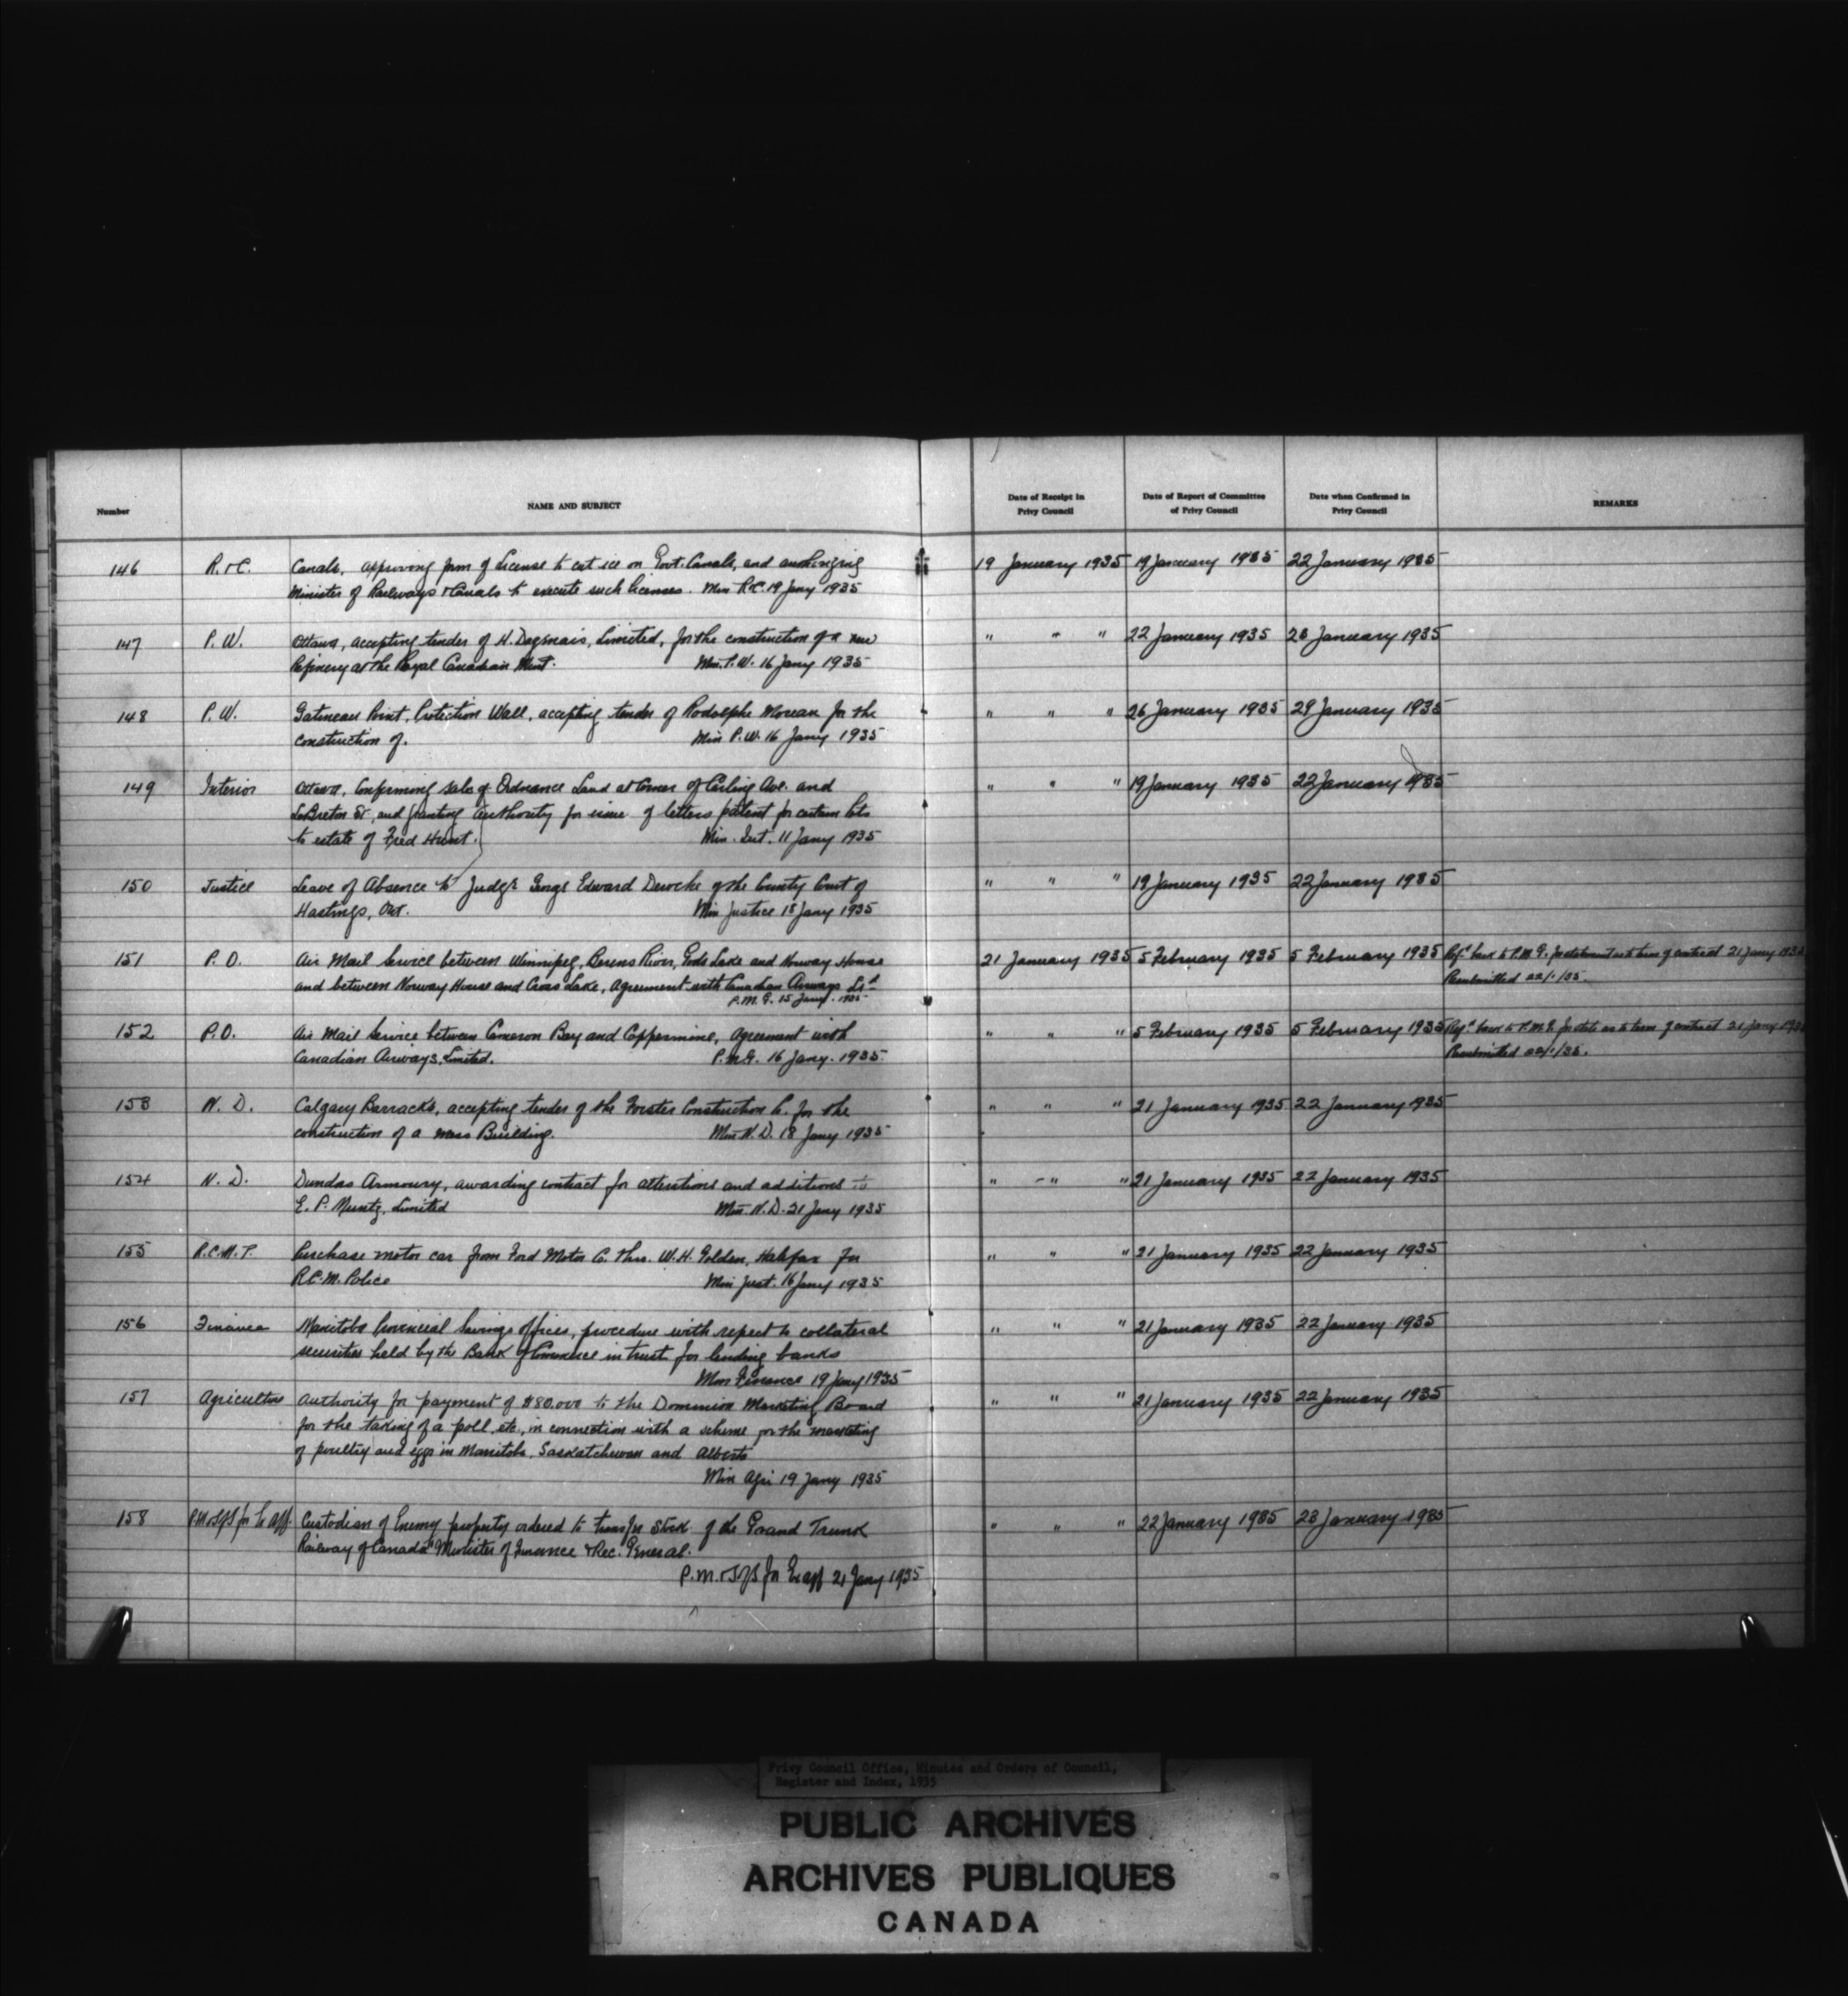 Number
NAME AND SUBJECT
Date of Receipt in Privy Council
Date of Report of Committee of Privy Council
Date when Confirmed in Privy Council
REMARKS
146 R. & C. Canals, approving form of License to cut ice on Govt. Canals, and authorizing 19 January 1935 19 January 1935 22 January 1935
Minister of Railways & Canals to execute such licenses. Min R.C. 19 Jany 1935
147 P. W. Ottawa, accepting tender of H. Dagenais, Limited, for the construction of a new " " " 22 January 1935 23 January 1935
Refinery at the Royal Canadian Mint. Min. P.W. 16 Jany 1935
148 P. W. Gatineau Point, Protection Wall, accepting tender of Rodolphe Moreau for the " " " 26 January 1935 29 January 1935
construction of. Min P.W. 16 Jany 1935
149 Interior Ottawa, Confirming sale of Ordnance Land at Corner of Carling Ave. and " " " 19 January 1935 22 January 1935
LeBreton St, and granting authority for issue of letters patent for certain lots
to estate of Fred Hunt. Min. Int. 11 Jany 1935
150 Justice Leave of Absence to Judge George Edward Deroche of the County Court of " " " 19 January 1935 22 January 1935
Hastings, Ont. Min Justice 18 Jany 1935
151 P. O. Air Mail Service between Winnipeg, Berens River, Gods Lake and Norway House 21 January 1935 5 February 1935 5 February 1935 Ref'd back to P.M.G. for statement as to term of contract 21 Jany 1935
and between Norway House and Cross Lake, Agreement with Canadian Airways Ltd Resubmitted 22/1/35.
P.M.G. 15 Jany. 1935
152 P. O. Air Mail Service between Cameron Bay and Coppermine, Agreement with " " " 5 February 1935 5 February 1935 Ref'd back to P.M.G. for state as to term of contract 21 Jany 1935
Canadian Airways, Limited. P.M.G. 16 Jany. 1935 Resubmitted 22/1/35.
153 N. D. Calgary Barracks, accepting tender of the Forster Construction Co. for the " " " 21 January 1935 22 January 1935
construction of a mess Building. Min N.D. 18 Jany 1935
154 N. D. Dundas Armoury, awarding contract for alterations and additions to " " " 21 January 1935 22 January 1935
E. P. Muntz, Limited Min. N.D. 21 Jany 1935
155 R.C.M.P. Purchase motor car from Ford Motor Co. thro. W.H. Golden, Halifax for " " " 21 January 1935 22 January 1935
R.C.M. Police Min Just. 16 Jany 1935
156 Finance Manitoba Provincial Savings offices, procedure with repect to collateral " " " 21 January 1935 22 January 1935
securities held by the Bank of Commerce in trust for lending banks
Min Finance 19 Jany 1935
157 Agriculture Authority for payment of $80.000 to the Dominion Marketing Board " " " 21 January 1935 22 January 1935
for the taking of a poll, etc., in connection with a scheme for the marketing
of poultry and eggs in Manitoba, Saskatchewan and Alberta
Min Agri 19 Jany 1935
158 P.M. & S/S for Ex aff. Custodian of Enemy property ordered to transfer Stock of the Grand Trunk " " " 22 January 1935 23 January 1935
Railway of Canada Minister of Finance & Rec. General.
P.M. & S/S for Ex aff 21 Jany 1935
Privy Council Office, Minutes and Orders of Council,
Register and Index, 1935
PUBLIC ARCHIVES
ARCHIVES PUBLIQUES
CANADA